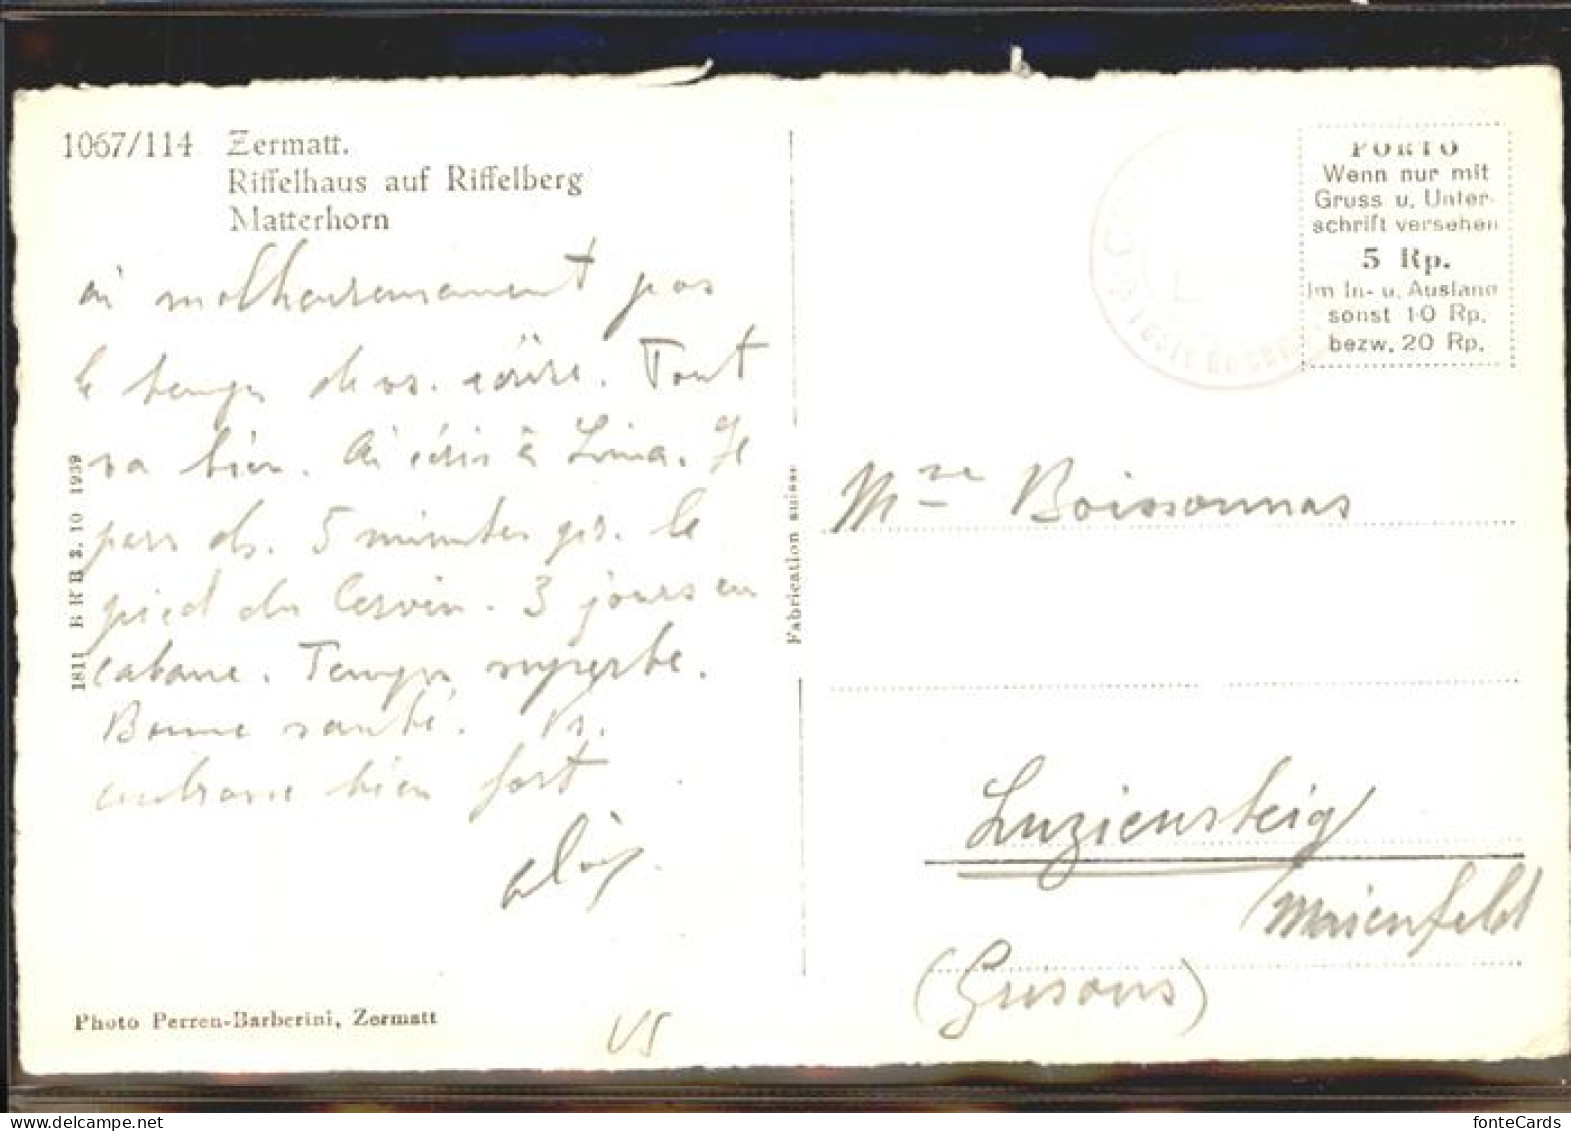 1067/114 Zermatt.
Riffelhaus auf Riffelberg
Matterhorn
ai malheureusement pas
le temps de vs. écrire. Tout
va bien. Ai écris à Lima. Je
pars ds. 5 minutes pr. le
pied du Cervin. 3 jours en
cabane. Temps superbe.
Bonne santé. Vs.
embrasse bien fort
1811 B R B 3. 10 1939
Fabrication suisse
Photo Perren-Barberini, Zermatt
VS
PORTO
Wenn nur mit
Gruss u. Unter-
schrift versehen
5 Rp.
Im In- u. Ausland
sonst 10 Rp.
bezw. 20 Rp.
Mme Boissonnas
Luziensteig
Maienfeld
(Grisons)
fonteCards